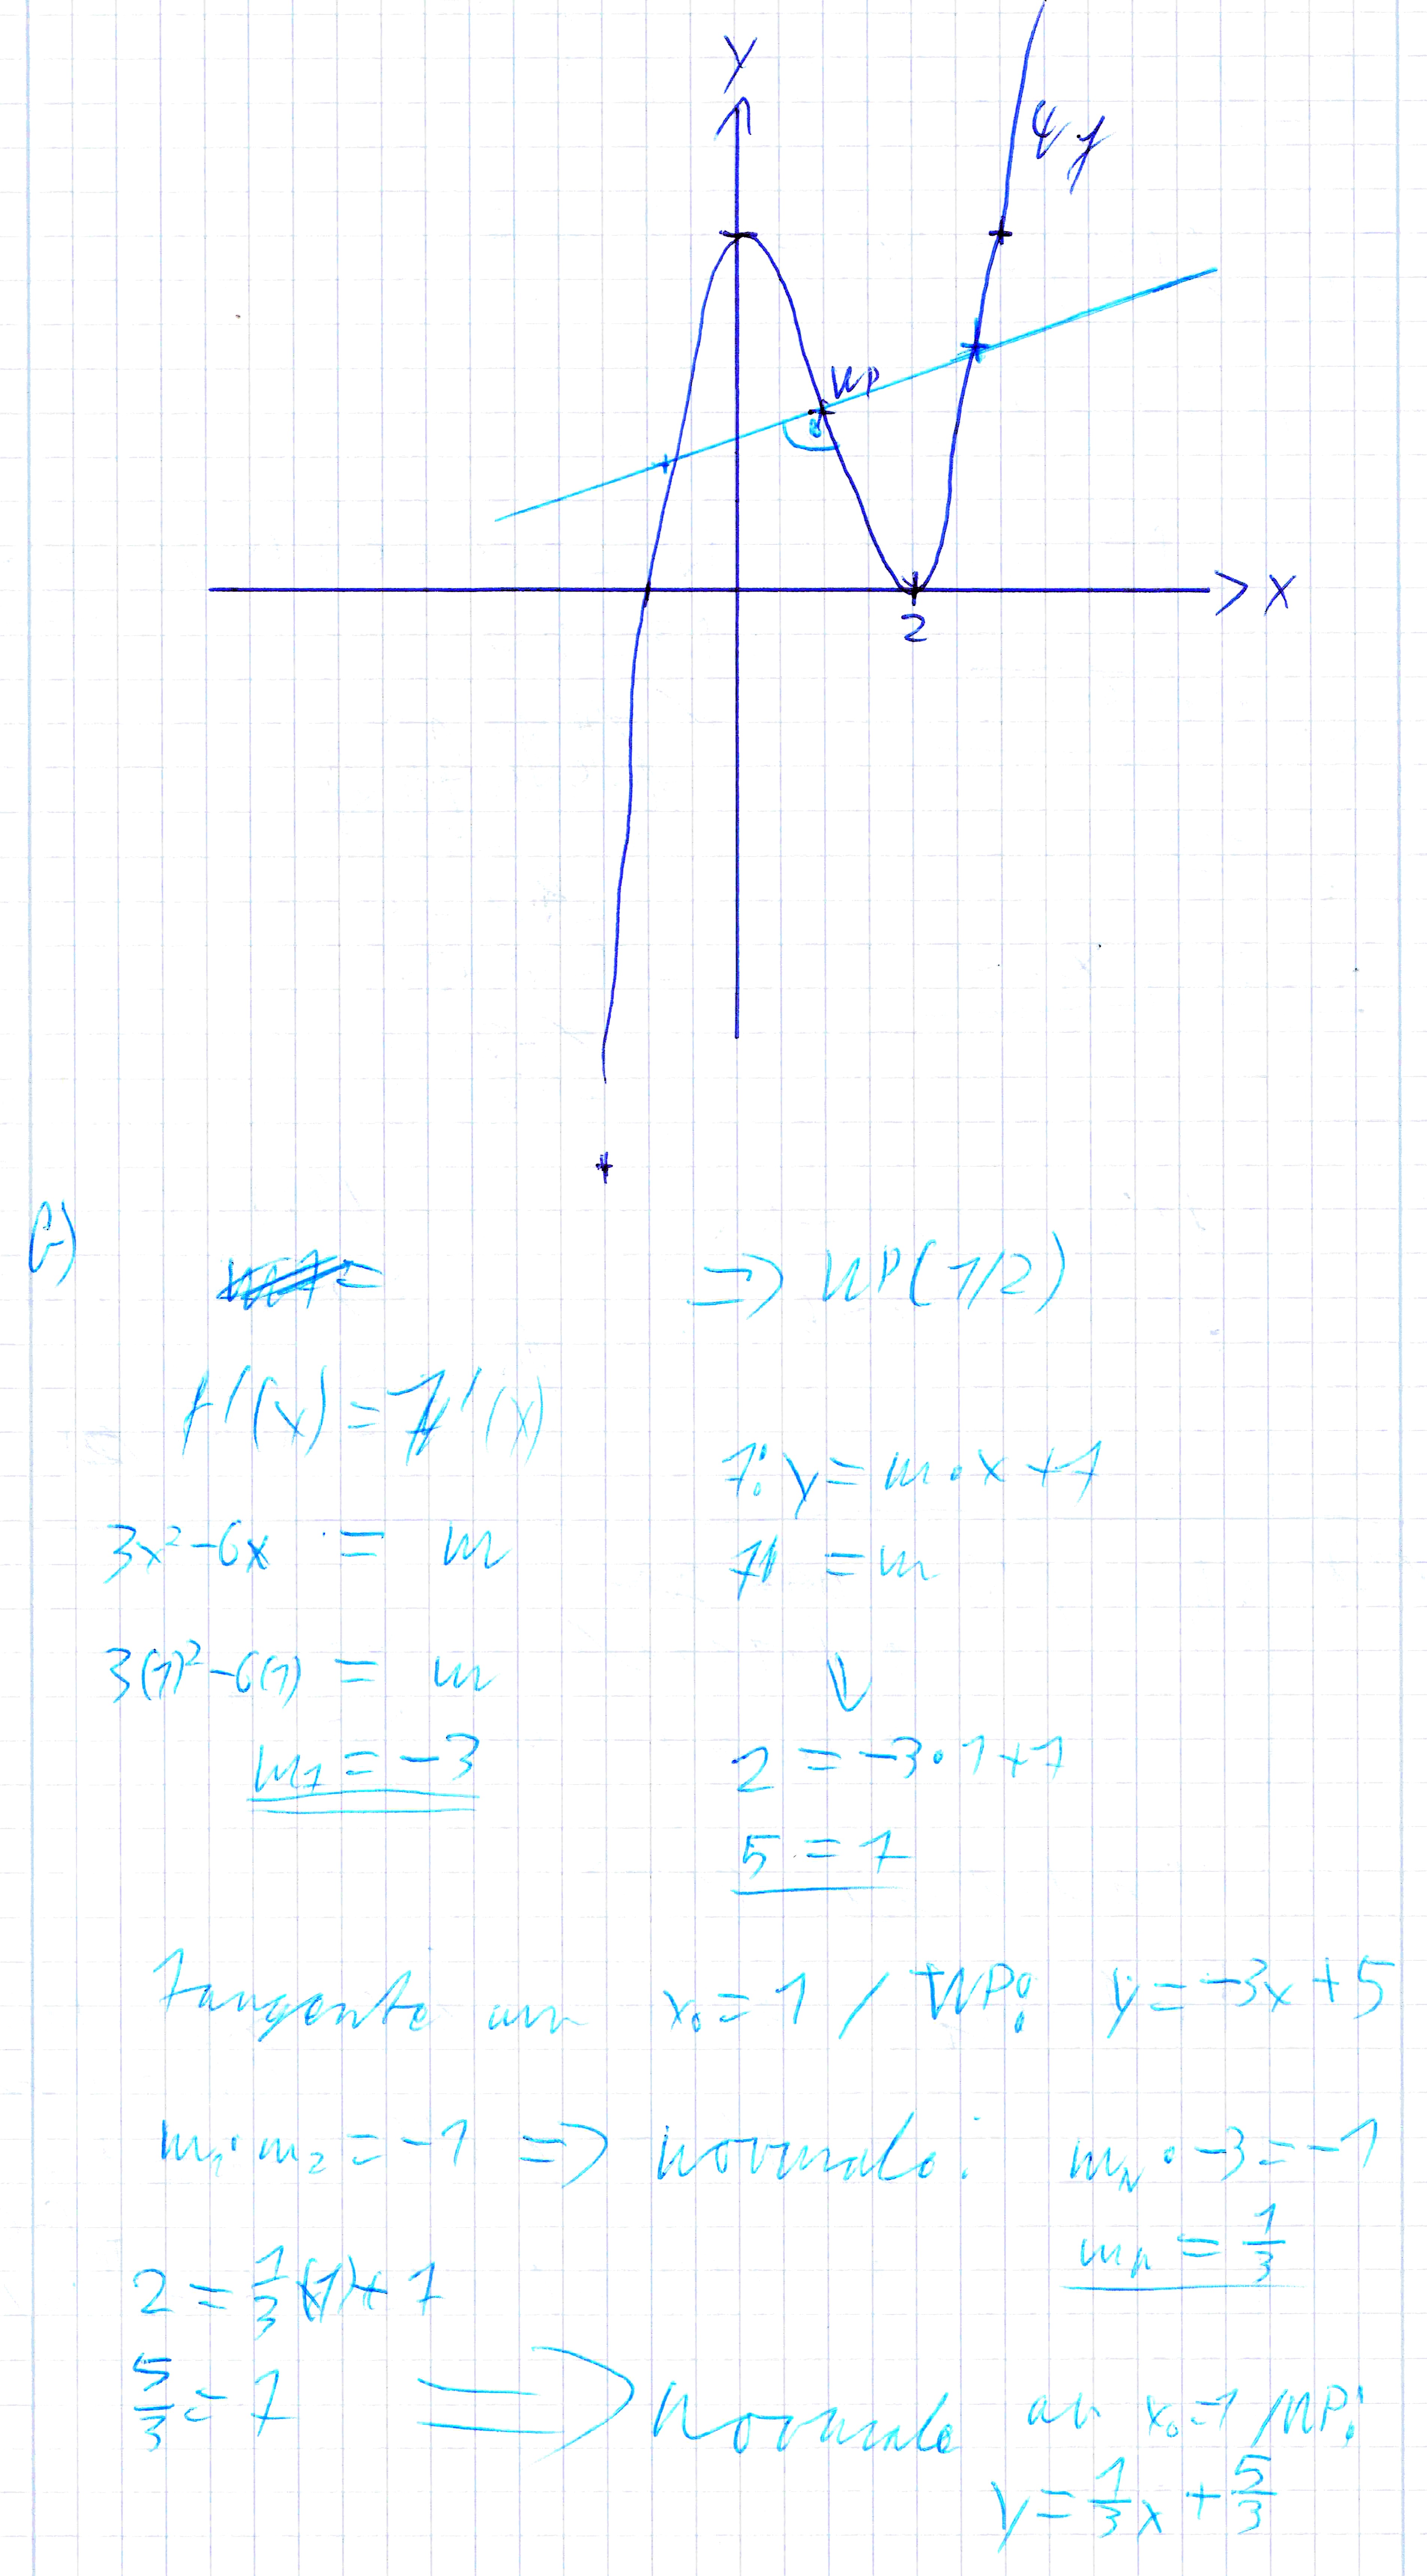 y
G f
WP
x
2
b)
=> WP(1/2)
f'(x) = t'(x)
t: y = m·x + t
3x²-6x = m
t' = m
3(1)²-6(1) = m
m₁ = -3
2 = -3·1+t
5 = t
Tangente an x₀ = 1 / WP: y = -3x + 5
m₁·m₂ = -1 => Normale: mN · -3 = -1
mn = 1/3
2 = 1/3(1)+t
5/3 = t => Normale an x₀=1 / WP:
y = 1/3x + 5/3